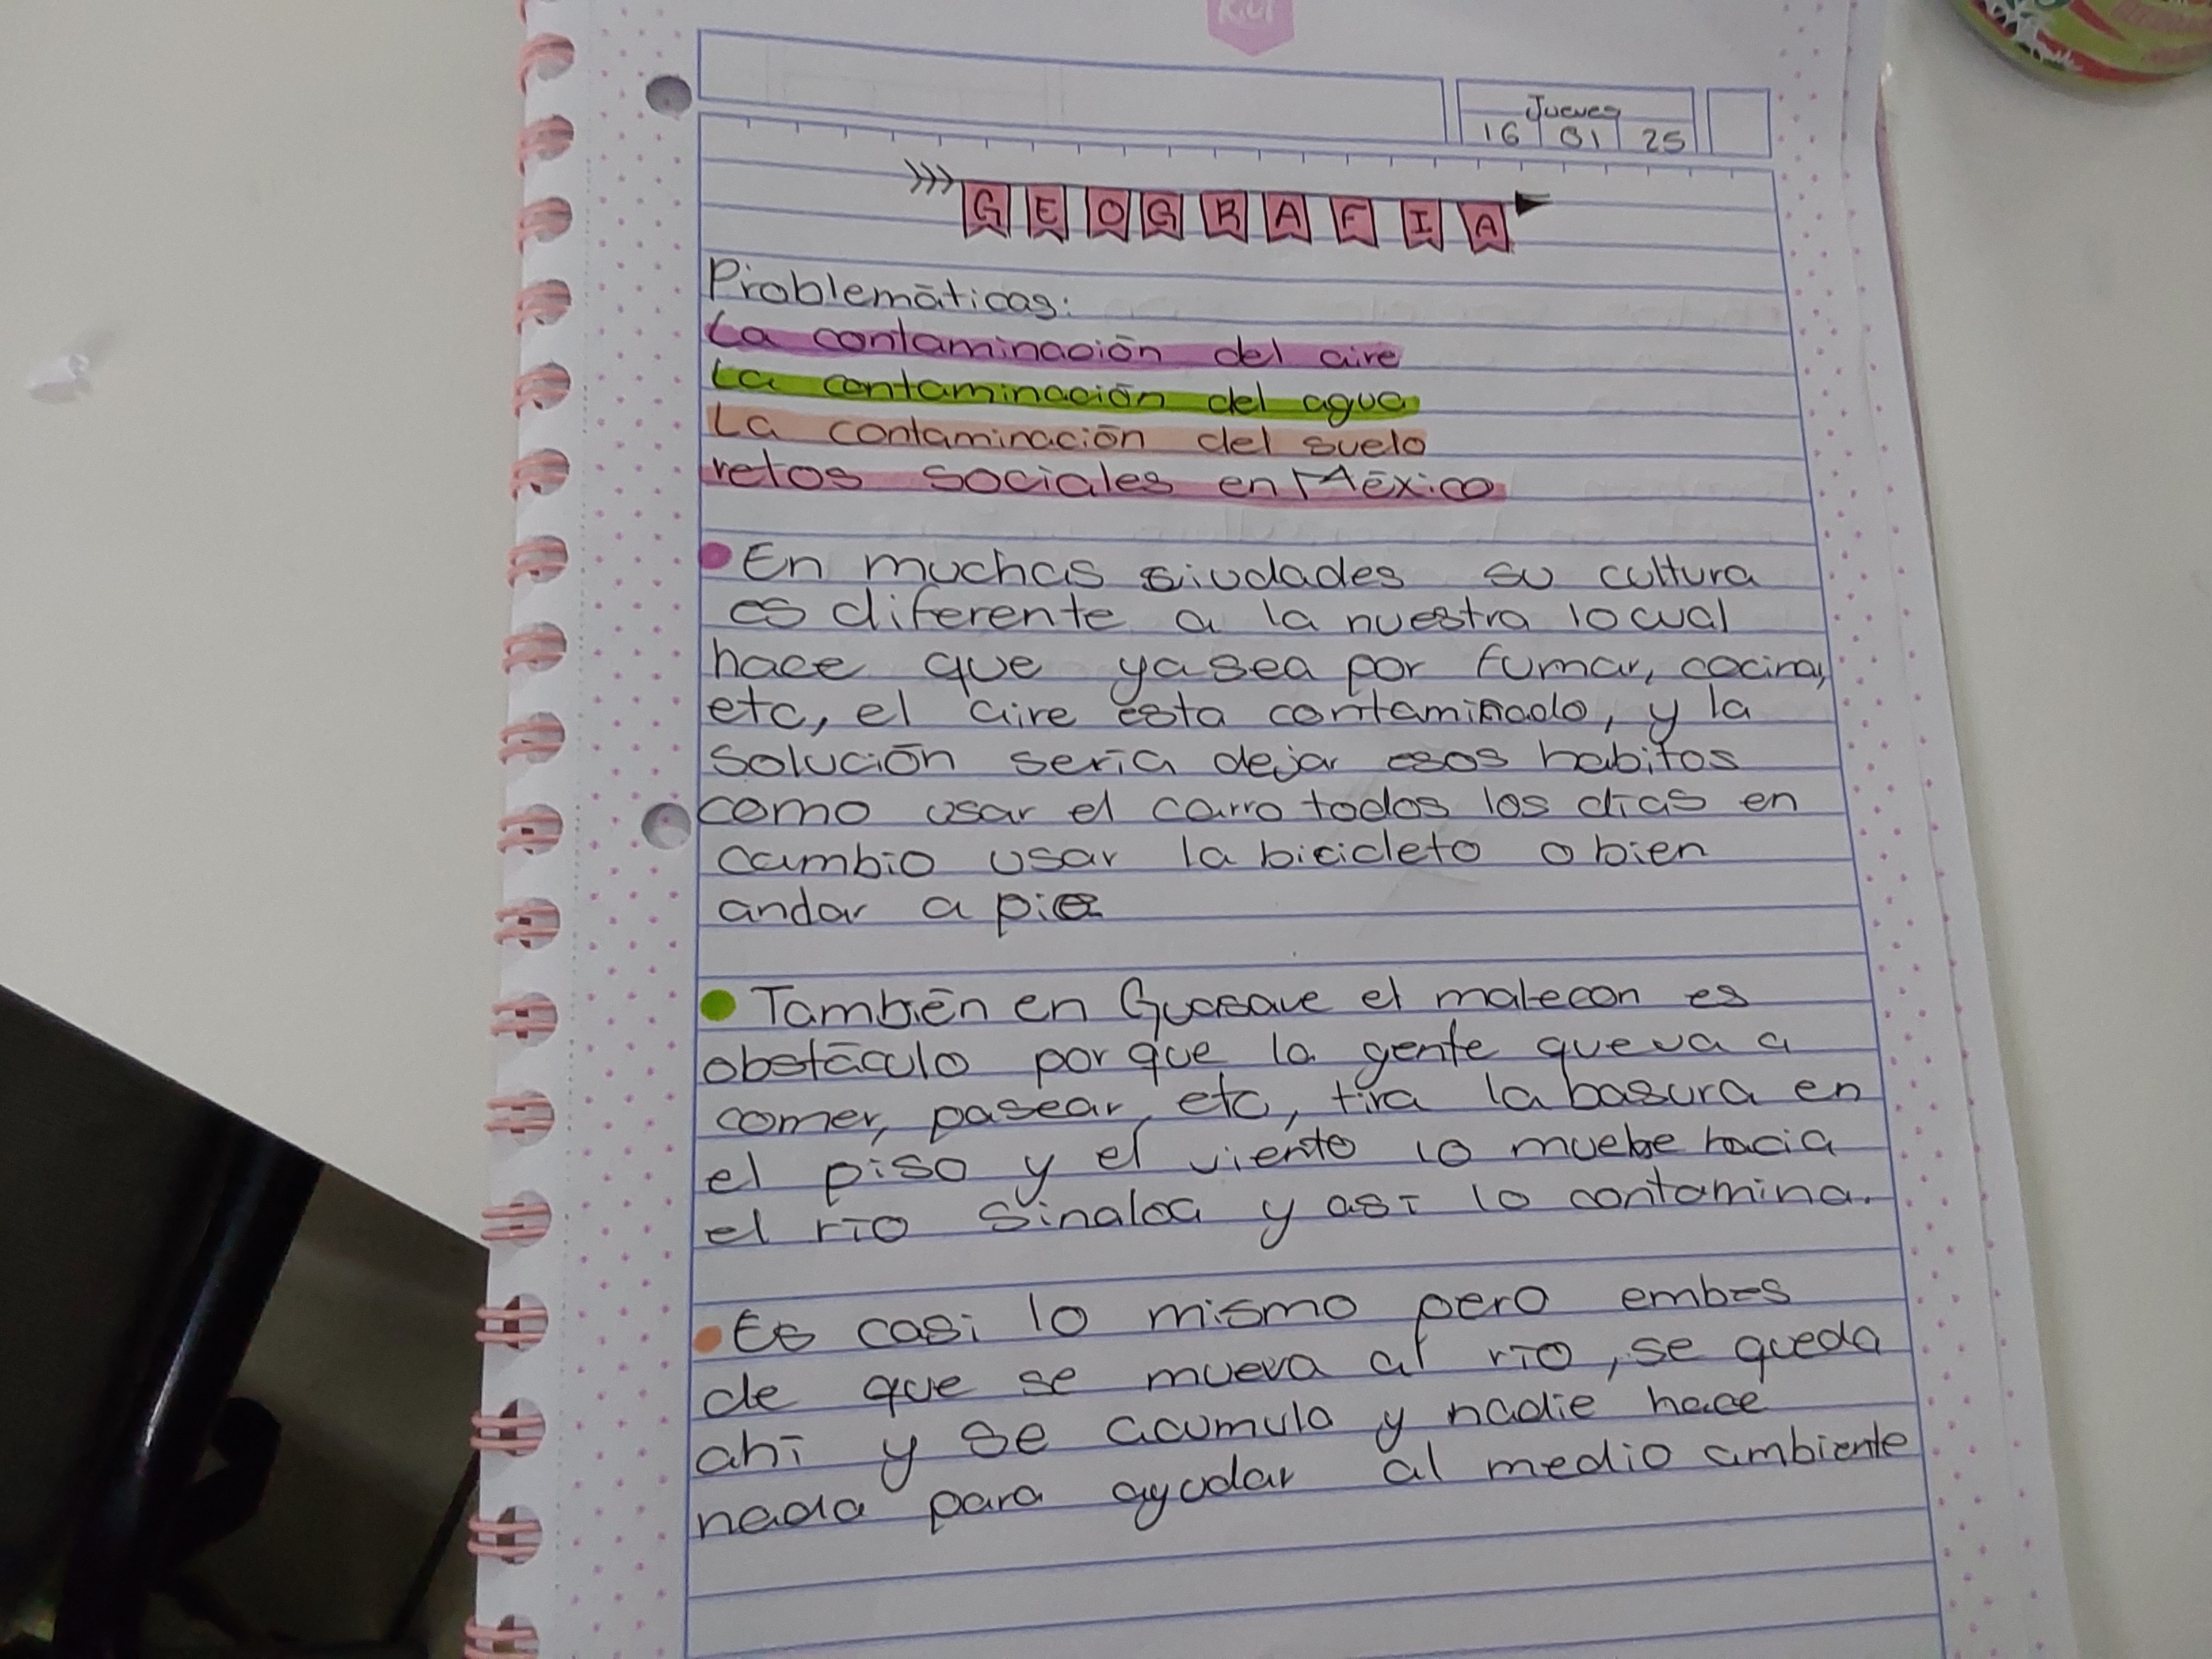 Jueves
16 01 25
GEOGRAFIA
Problemáticas:
La contaminación del aire
La contaminación del agua
La contaminación del suelo
retos sociales en México
En muchas siudades su cultura
es diferente a la nuestra lo cual
hace que ya sea por fumar, cocina,
etc, el aire esta contaminado, y la
solución sería dejar esos habitos
como usar el carro todos los días en
cambio usar la bicicleta o bien
andar a pie
También en Guasave el malecon es
obstáculo por que la gente que va a
comer, pasear, etc, tira la basura en
el piso y el viento lo muebe hacia
el río Sinaloa y así lo contamina.
Es casi lo mismo pero embes
de que se mueva al río, se queda
ahí y se acumula y nadie hace
nada para ayudar al medio ambiente